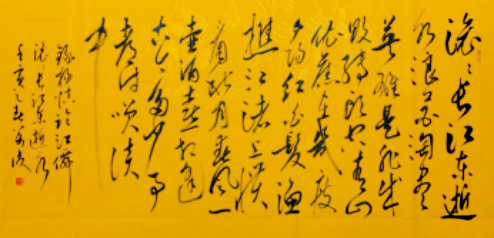 滚〻长江东逝
水浪花淘尽
英雄是非成
败转头空青山
依旧在几度
夕阳红白发渔
樵江渚上惯
看秋月春风一
壶浊酒喜相逢
古今多少事
都付笑谈
中
录杨慎
滚〻长江东逝水